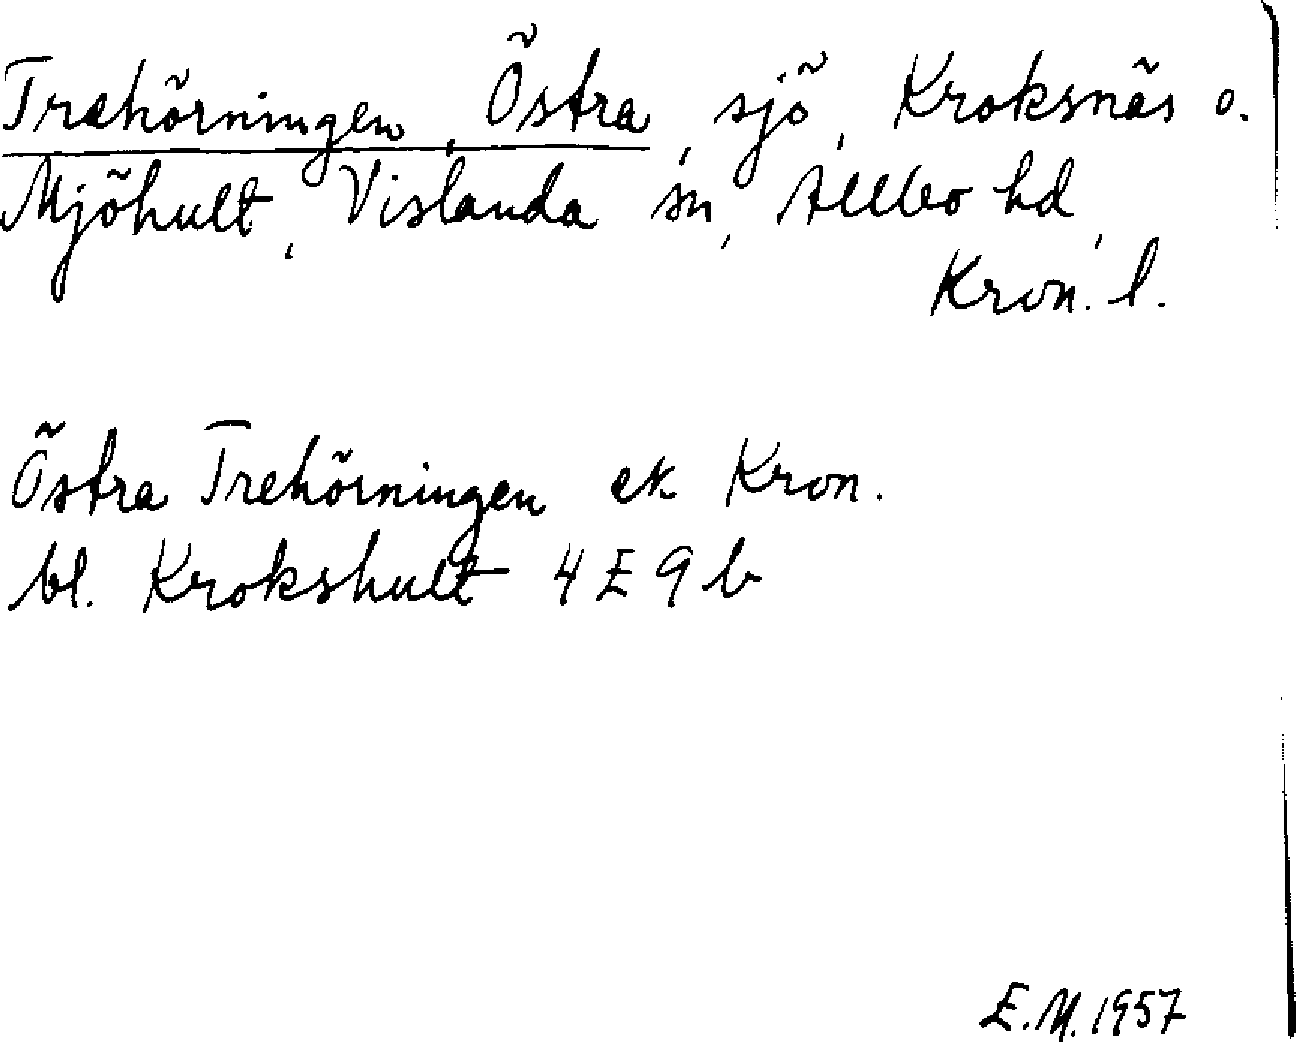 Trehörningen, Östra, sjö, Kroksnäs o.
Mjöhult, Vislanda sn, Allbo hd,
Kron. l.
Östra Trehörningen ek Kron.
bl. Krokshult 4 E 9 b
E.M. 1957